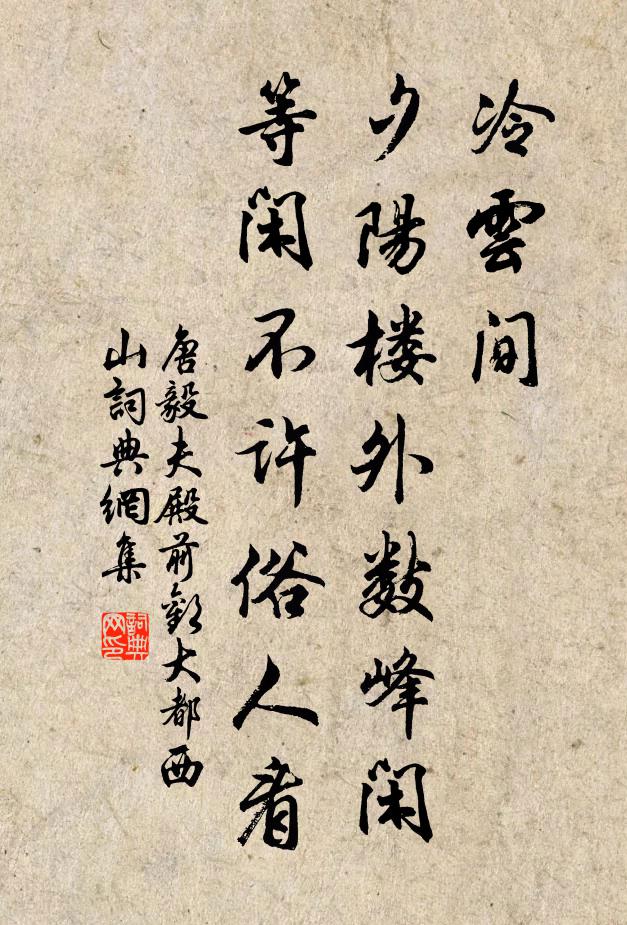 冷雲間
夕陽楼外数峰閑
等閑不許俗人看
唐毅夫殿前歡大都西
山詞典網集
詞典
网印